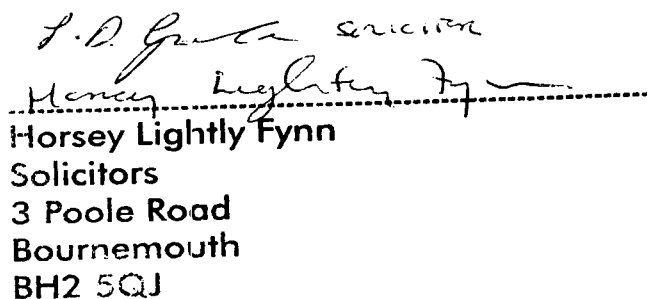 solicitor
Horsey Lightly Fynn
Horsey Lightly Fynn
Solicitors
3 Poole Road
Bournemouth
BH2 5QJ